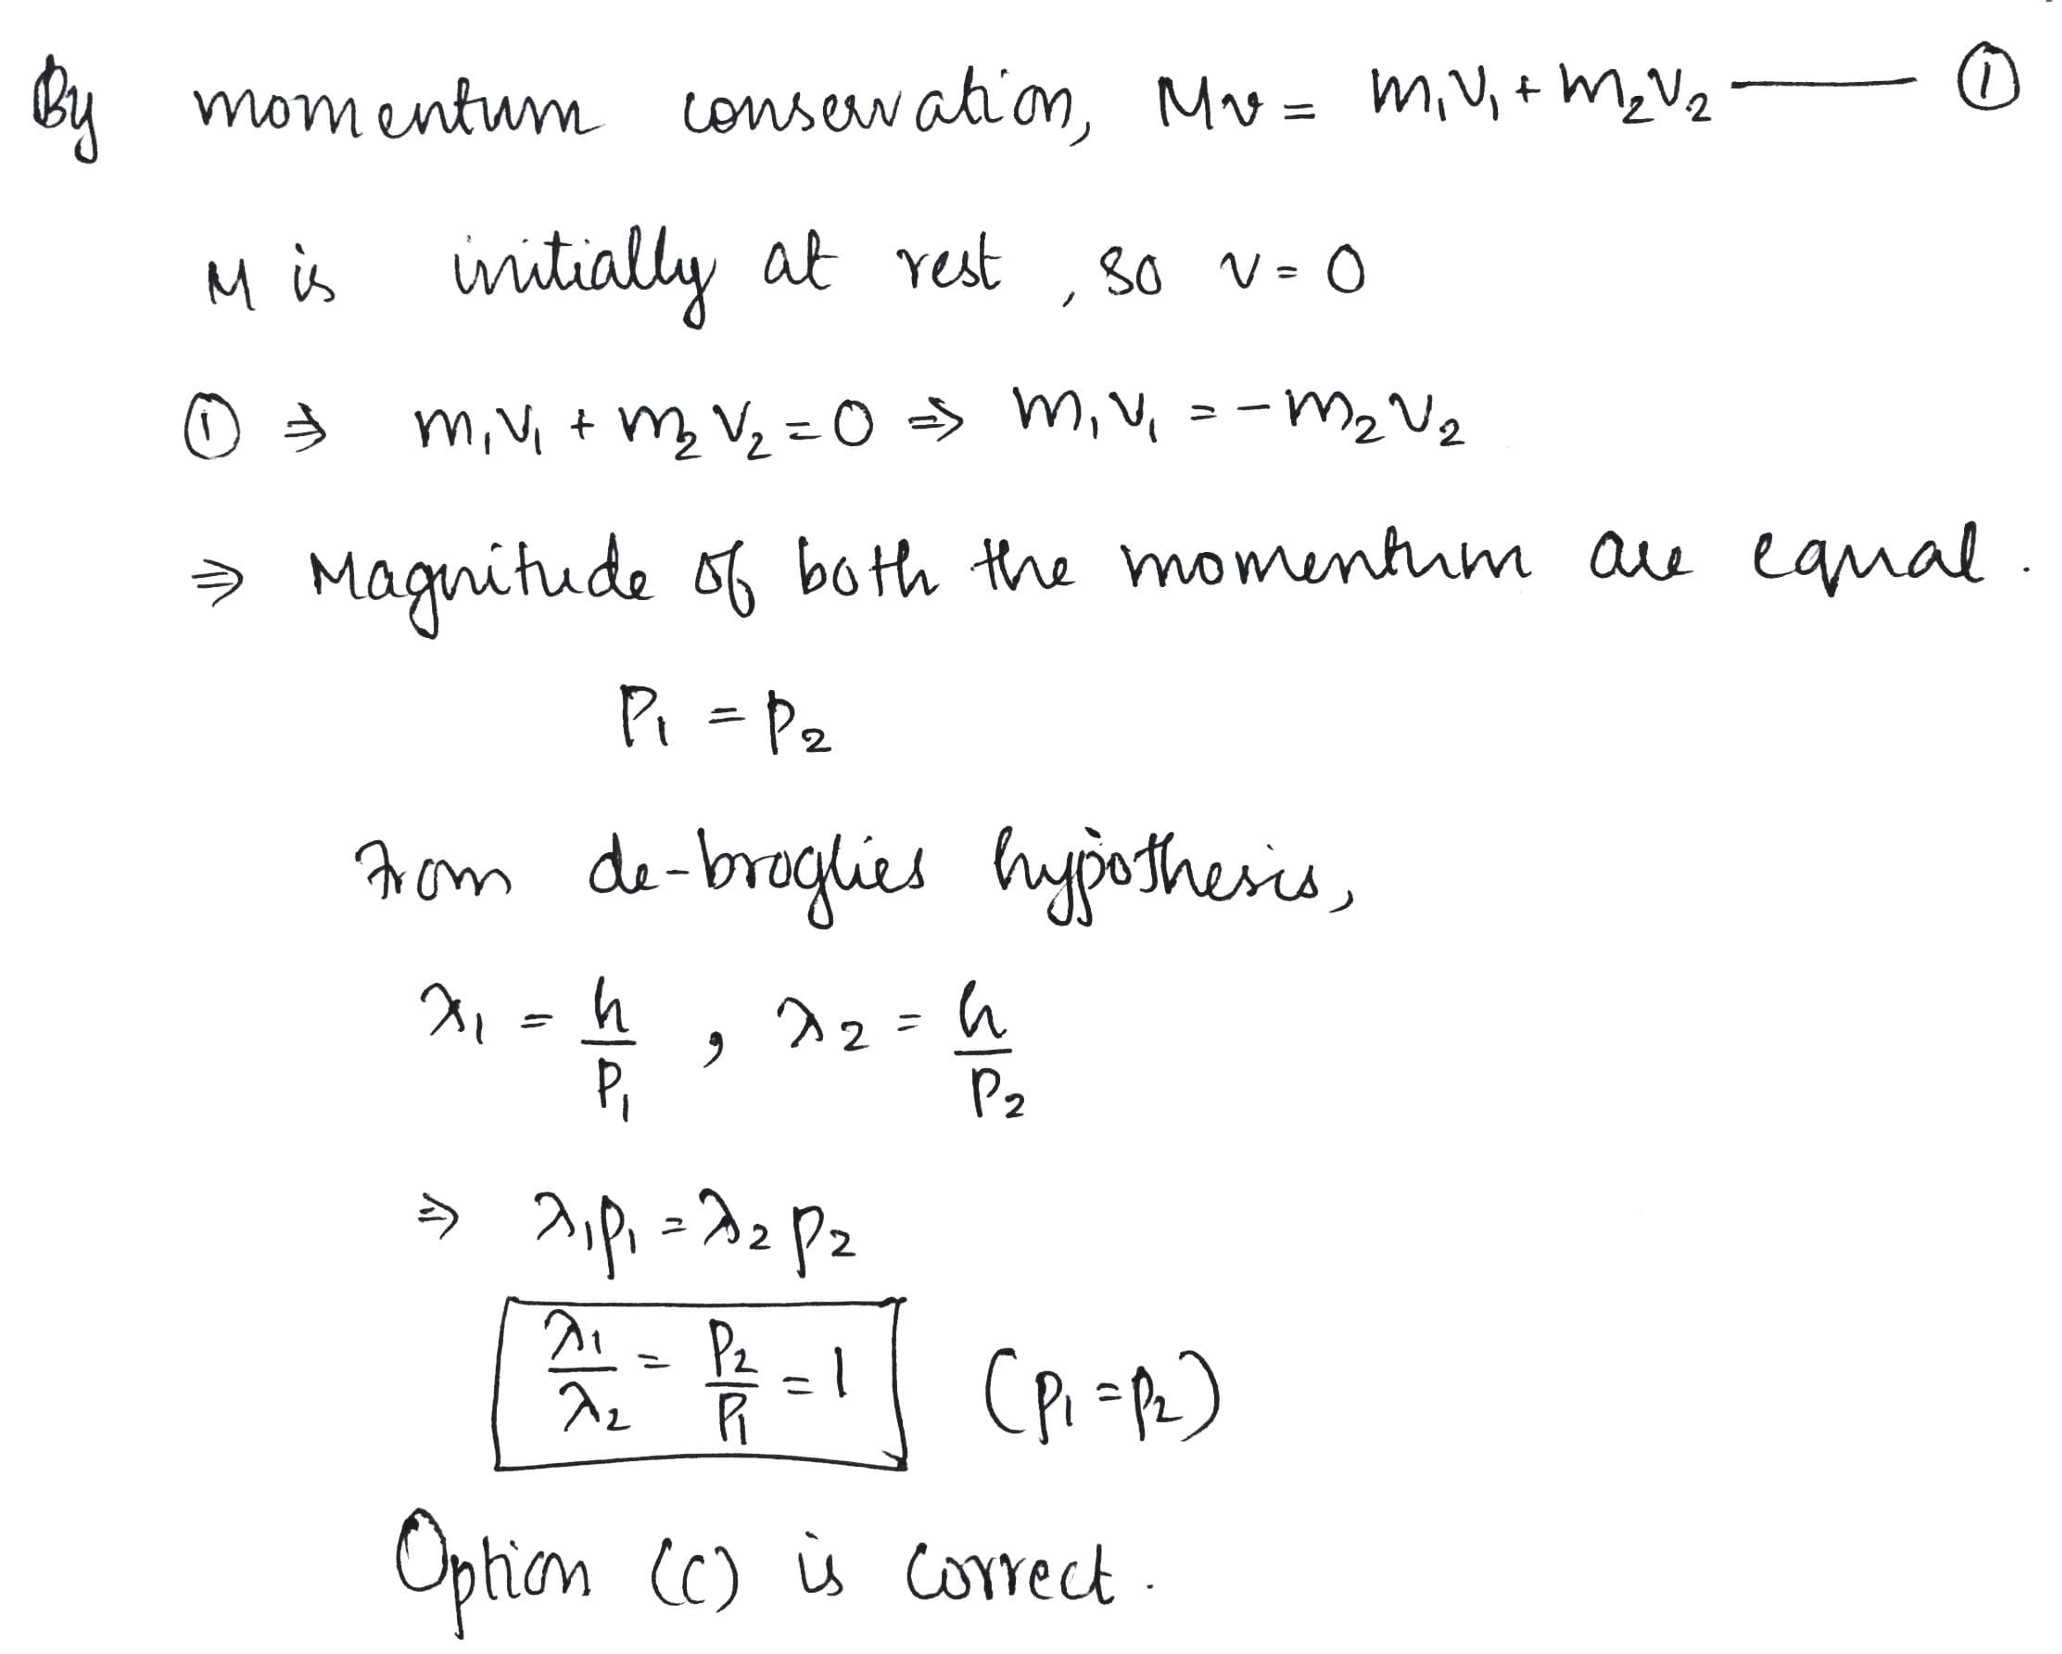 By momentum conservation, Mv = m₁v₁ + m₂v₂ —— ①
M is initially at rest, so v = 0
① ⇒ m₁v₁ + m₂v₂ = 0 ⇒ m₁v₁ = -m₂v₂
⇒ Magnitude of both the momentum are equal.
P₁ = P₂
From de-broglies hypothesis,
λ₁ = h/P₁ , λ₂ = h/P₂
⇒ λ₁p₁ = λ₂p₂
λ₁/λ₂ = P₂/P₁ = 1 (p₁ = p₂)
Option (c) is correct.